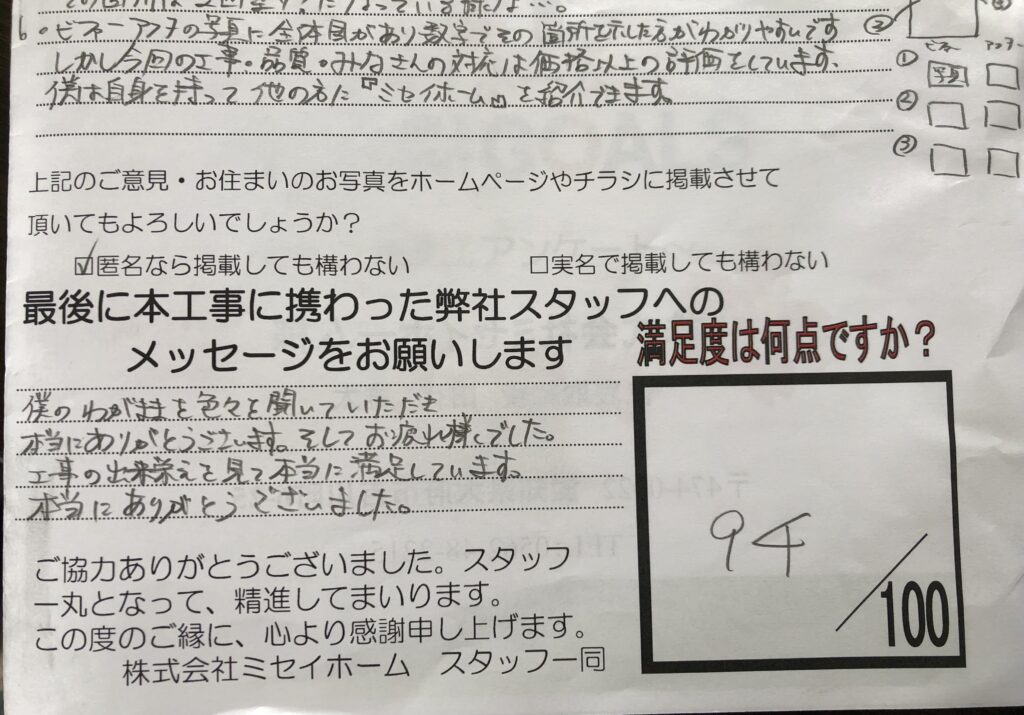 6.・ビフォーアフタの写真に全体図があり数字でその箇所示した方がわかりやすいです
しかし今回の工事・品質・みなさんの対応は価格以上の評価をしています。
僕は自身を持って他の方に『ミセイホーム』を紹介できます。
② 
① 写真
②
③
上記のご意見・お住まいのお写真をホームページやチラシに掲載させて
頂いてもよろしいでしょうか？
☑匿名なら掲載しても構わない □実名で掲載しても構わない
最後に本工事に携わった弊社スタッフへの
メッセージをお願いします
満足度は何点ですか？
僕のわがままを色々を聞いていただき
本当にありがとうございます。そしてお疲れ様でした。
工事の出来栄えを見て本当に満足しています。
本当にありがとうございました。
94
/100
ご協力ありがとうございました。スタッフ
一丸となって、精進してまいります。
この度のご縁に、心より感謝申し上げます。
株式会社ミセイホーム スタッフ一同